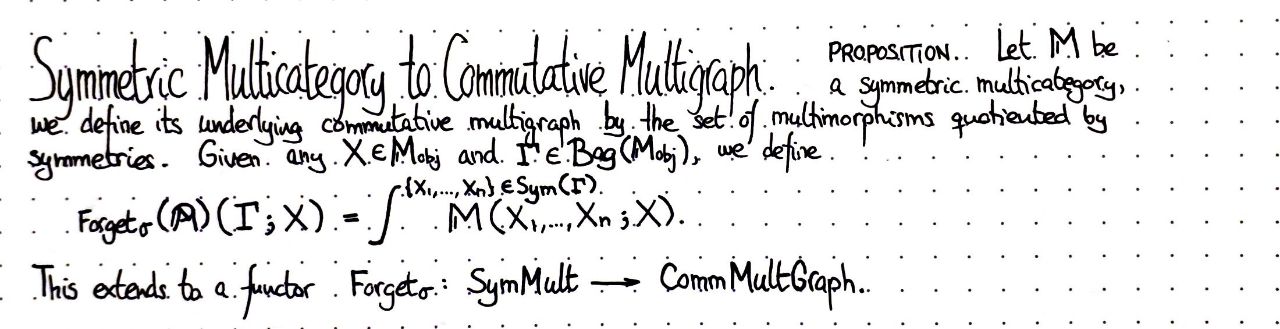 Symmetric Multicategory to Commutative Multigraph. PROPOSITION.. Let M be
a symmetric multicategory,
we define its underlying commutative multigraph by the set of multimorphisms quotiented by
symmetries. Given any X ∈ Mobj and Γ ∈ Bag(Mobj), we define
Forgetσ(M)(Γ; X) = ∫^{X₁,...,Xₙ} ∈ Sym(Γ) M(X₁,...,Xₙ; X).
This extends to a functor Forgetσ: SymMult ⟶ CommMultGraph.